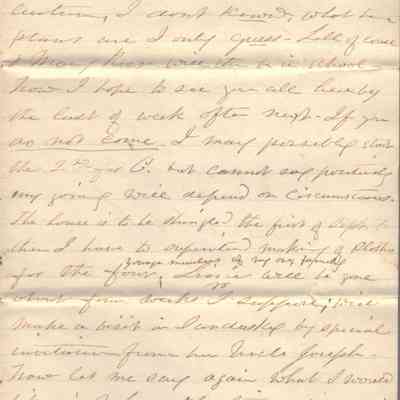 custom, I dont know, what her
plans are I only guess - Lill of course
& Mary will be in school -
Now I hope to see you all here by
the last of week after next - If you
do not Come, I may possibly start
the 2nd for C. but cannot say positively
my going will depend on Circumstances.
The house is to be shingled the first of Sept. &
then I have to superintend making of clothes
younger members of my own family
for the four, Lizzie will be gone
about four weeks I suppose, will
make a visit in Sandusky by special
invitation from her Uncle Joseph -
Now let me say again what I would